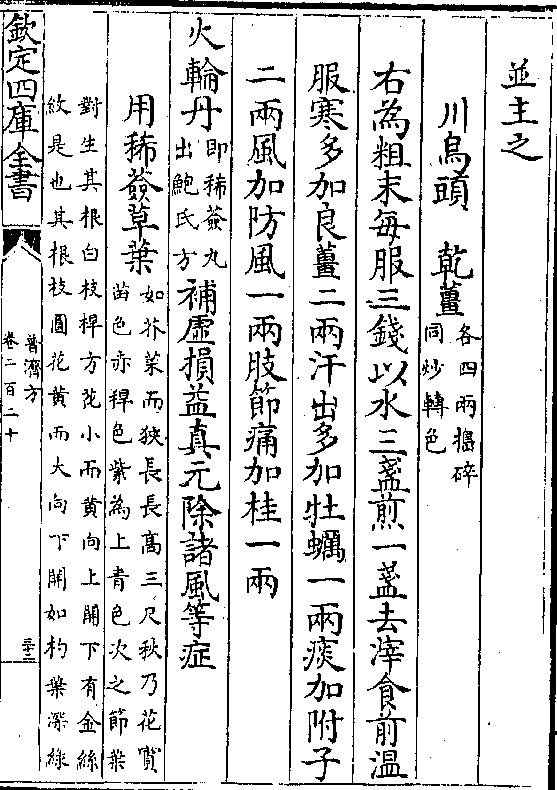 並主之
川烏頭　乾薑各四兩搗碎
同炒轉色
右為粗末每服三錢以水三盞煎一盞去滓食前溫
服寒多加良薑二兩汗出多加牡蠣一兩痰加附子
二兩風加防風一兩肢節痛加桂一兩
火輪丹即豨薟丸
出鮑氏方補虛損益真元除諸風等症
用豨薟草葉如芥菜而狹長長高三尺秋乃花實
苗色赤稈色紫為上青色次之節葉
對生其根白枝稈方花小而黄向上開下有金絲
紋是也其根枝圓花黄而大向下開如杓葉深緑
欽定四庫全書
普濟方
卷二百二十
三十三